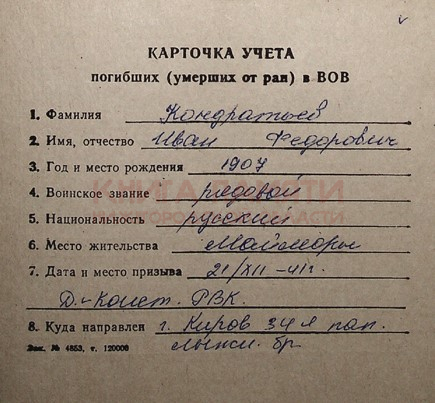 КАРТОЧКА УЧЕТА
погибших (умерших от ран) в ВОВ
1. Фамилия Кондратьев
2. Имя, отчество Иван Федорович
3. Год и место рождения 1907
4. Воинское звание рядовой
КНИГА ПАМЯТИ
5. Национальность русский
6. Место жительства
7. Дата и место призыва 21/XII-41г.
Д.-Конст. РВК.
8. Куда направлен г. Киров 34 я
Зак. № 4853, т. 120000 лыжн. бр